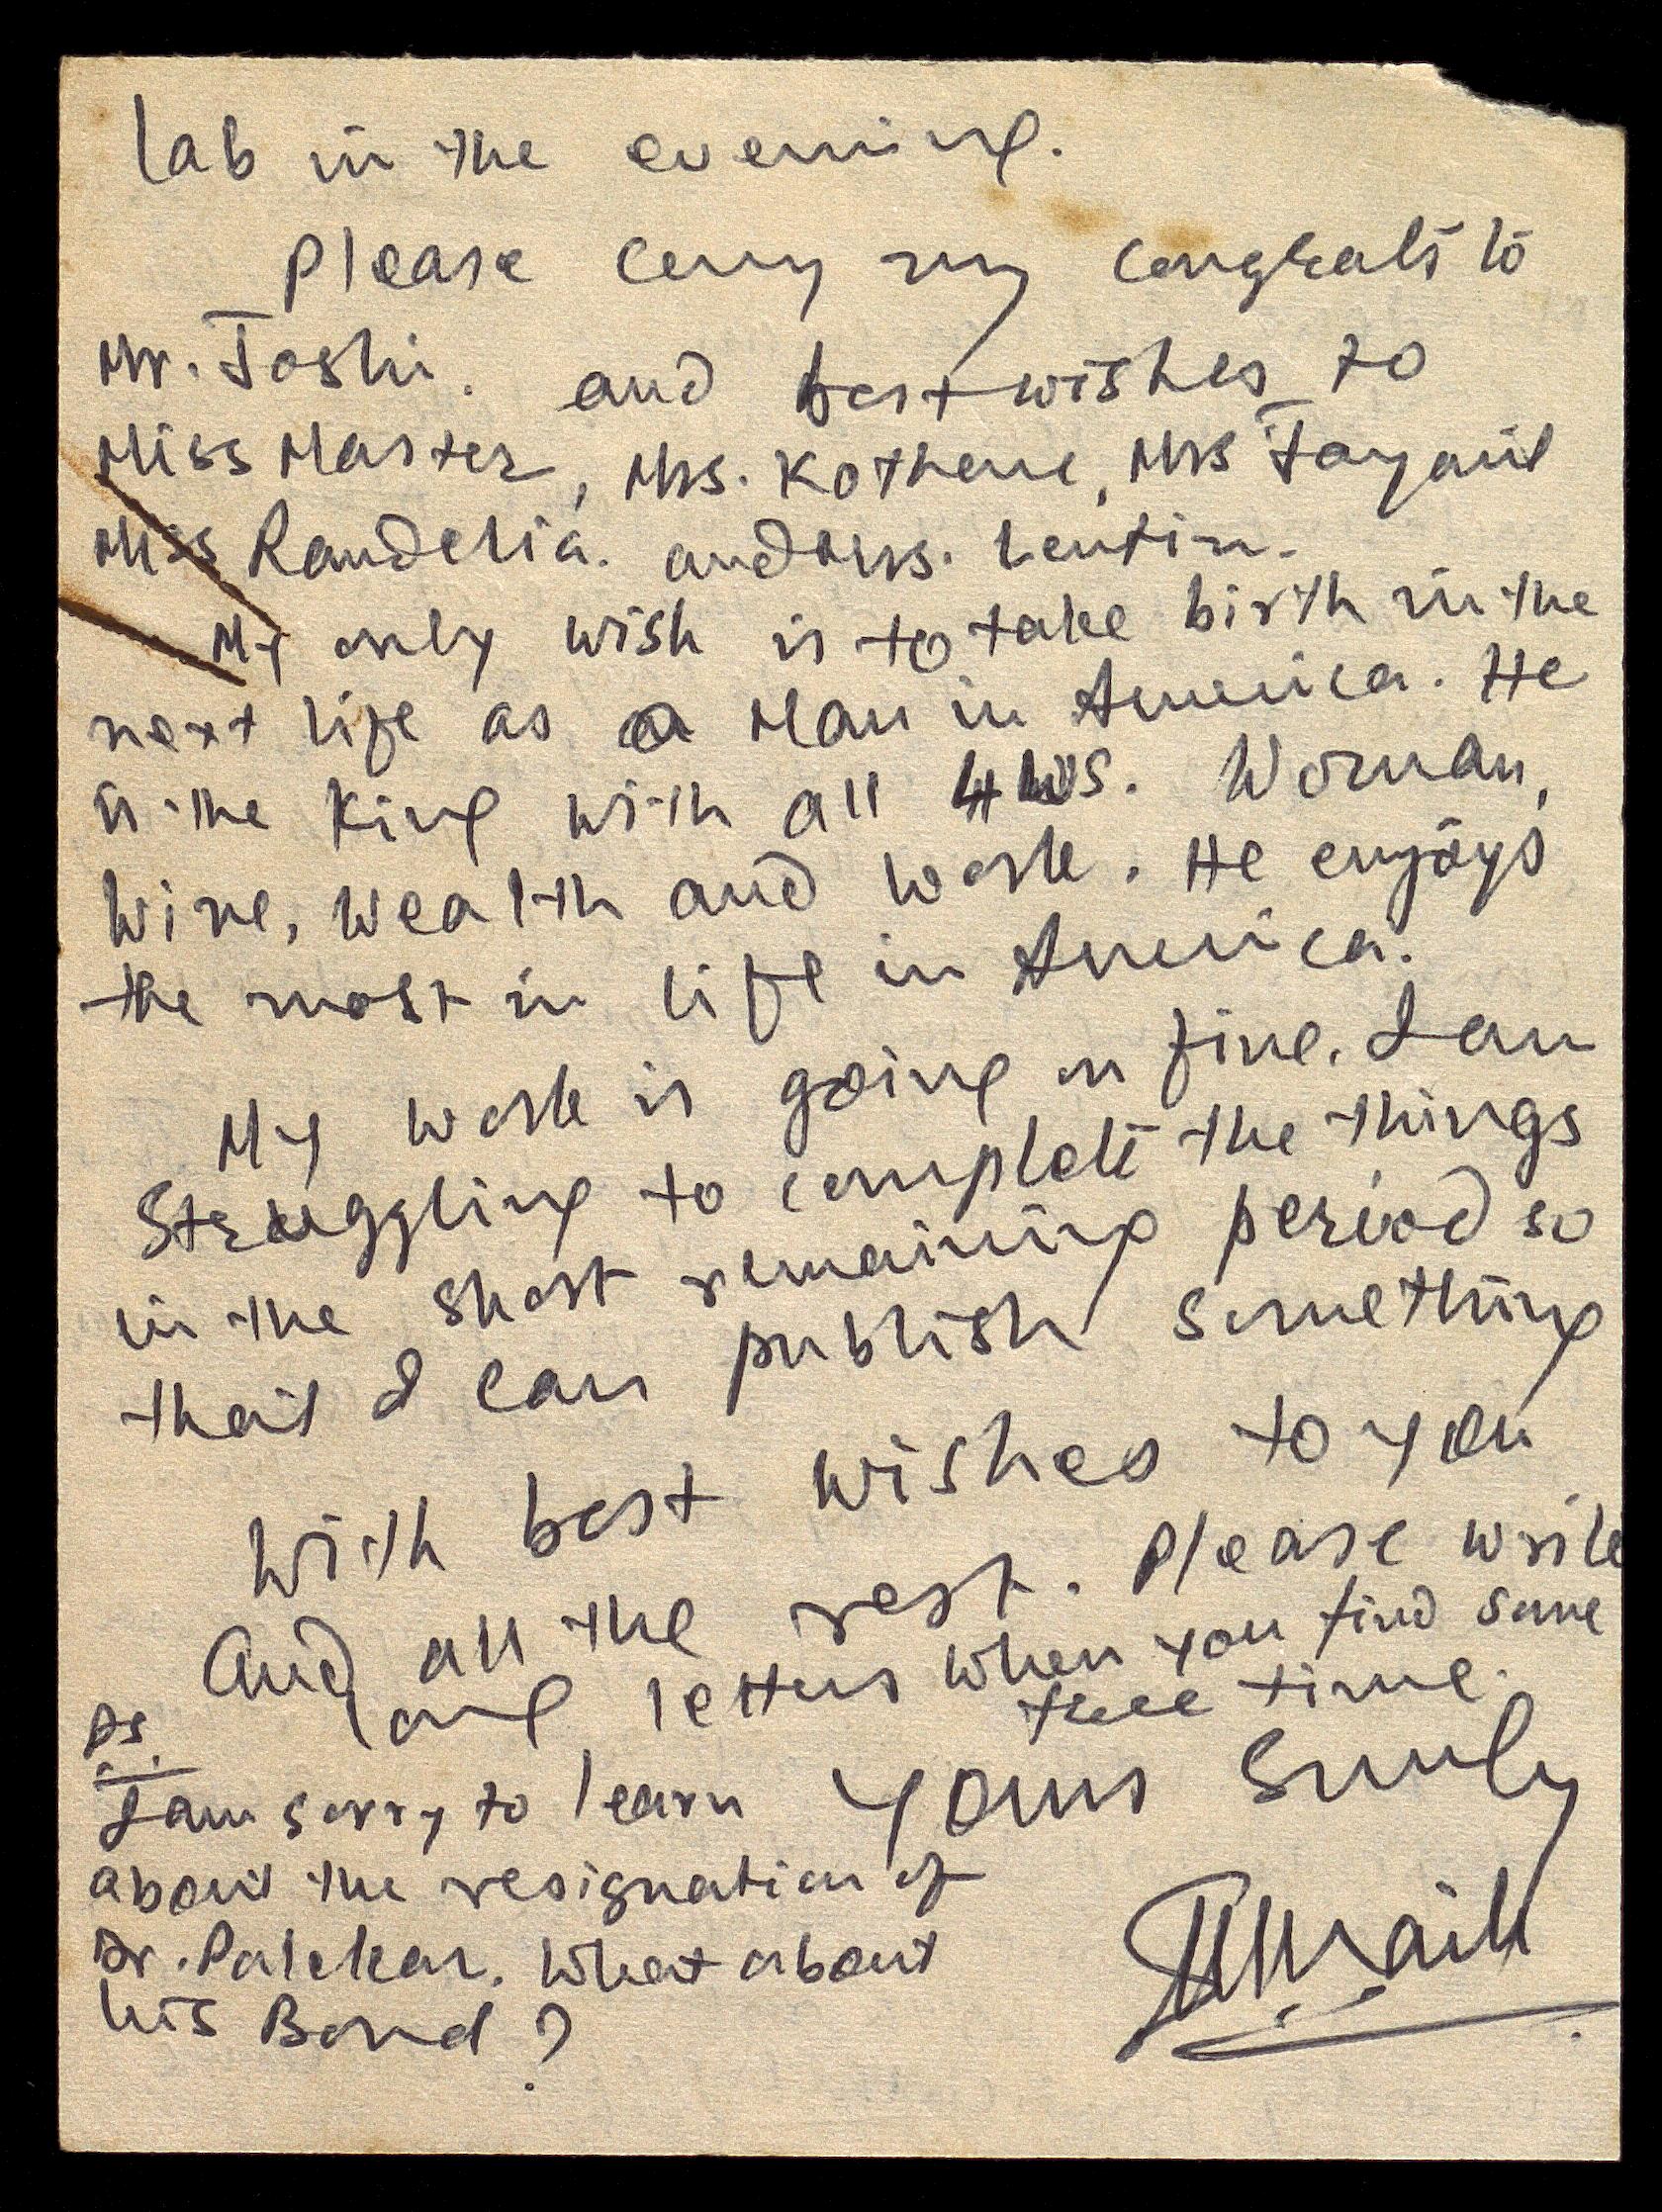 lab in the evening.
Please convey my congrats to
Mr. Joshi. and best wishes to
Miss Master, Mrs. Kothare, Mrs
Miss Randelia. and Mrs. Lentin.
My only wish is to take birth in the
next life as a Man in America. He
is the King with all 4 Ws. Woman,
Wine, Wealth and Work. He enjoys
the most in life in America.
My work is going on fine. I am
Struggling to complete the things
in the short remaining period so
that I can publish something
With best wishes to you
And all the rest. Please write
long letters when you find some
free time.
Yours
PS.
I am sorry to learn
about the resignation of
Dr. Palekar. What about
his Bond?